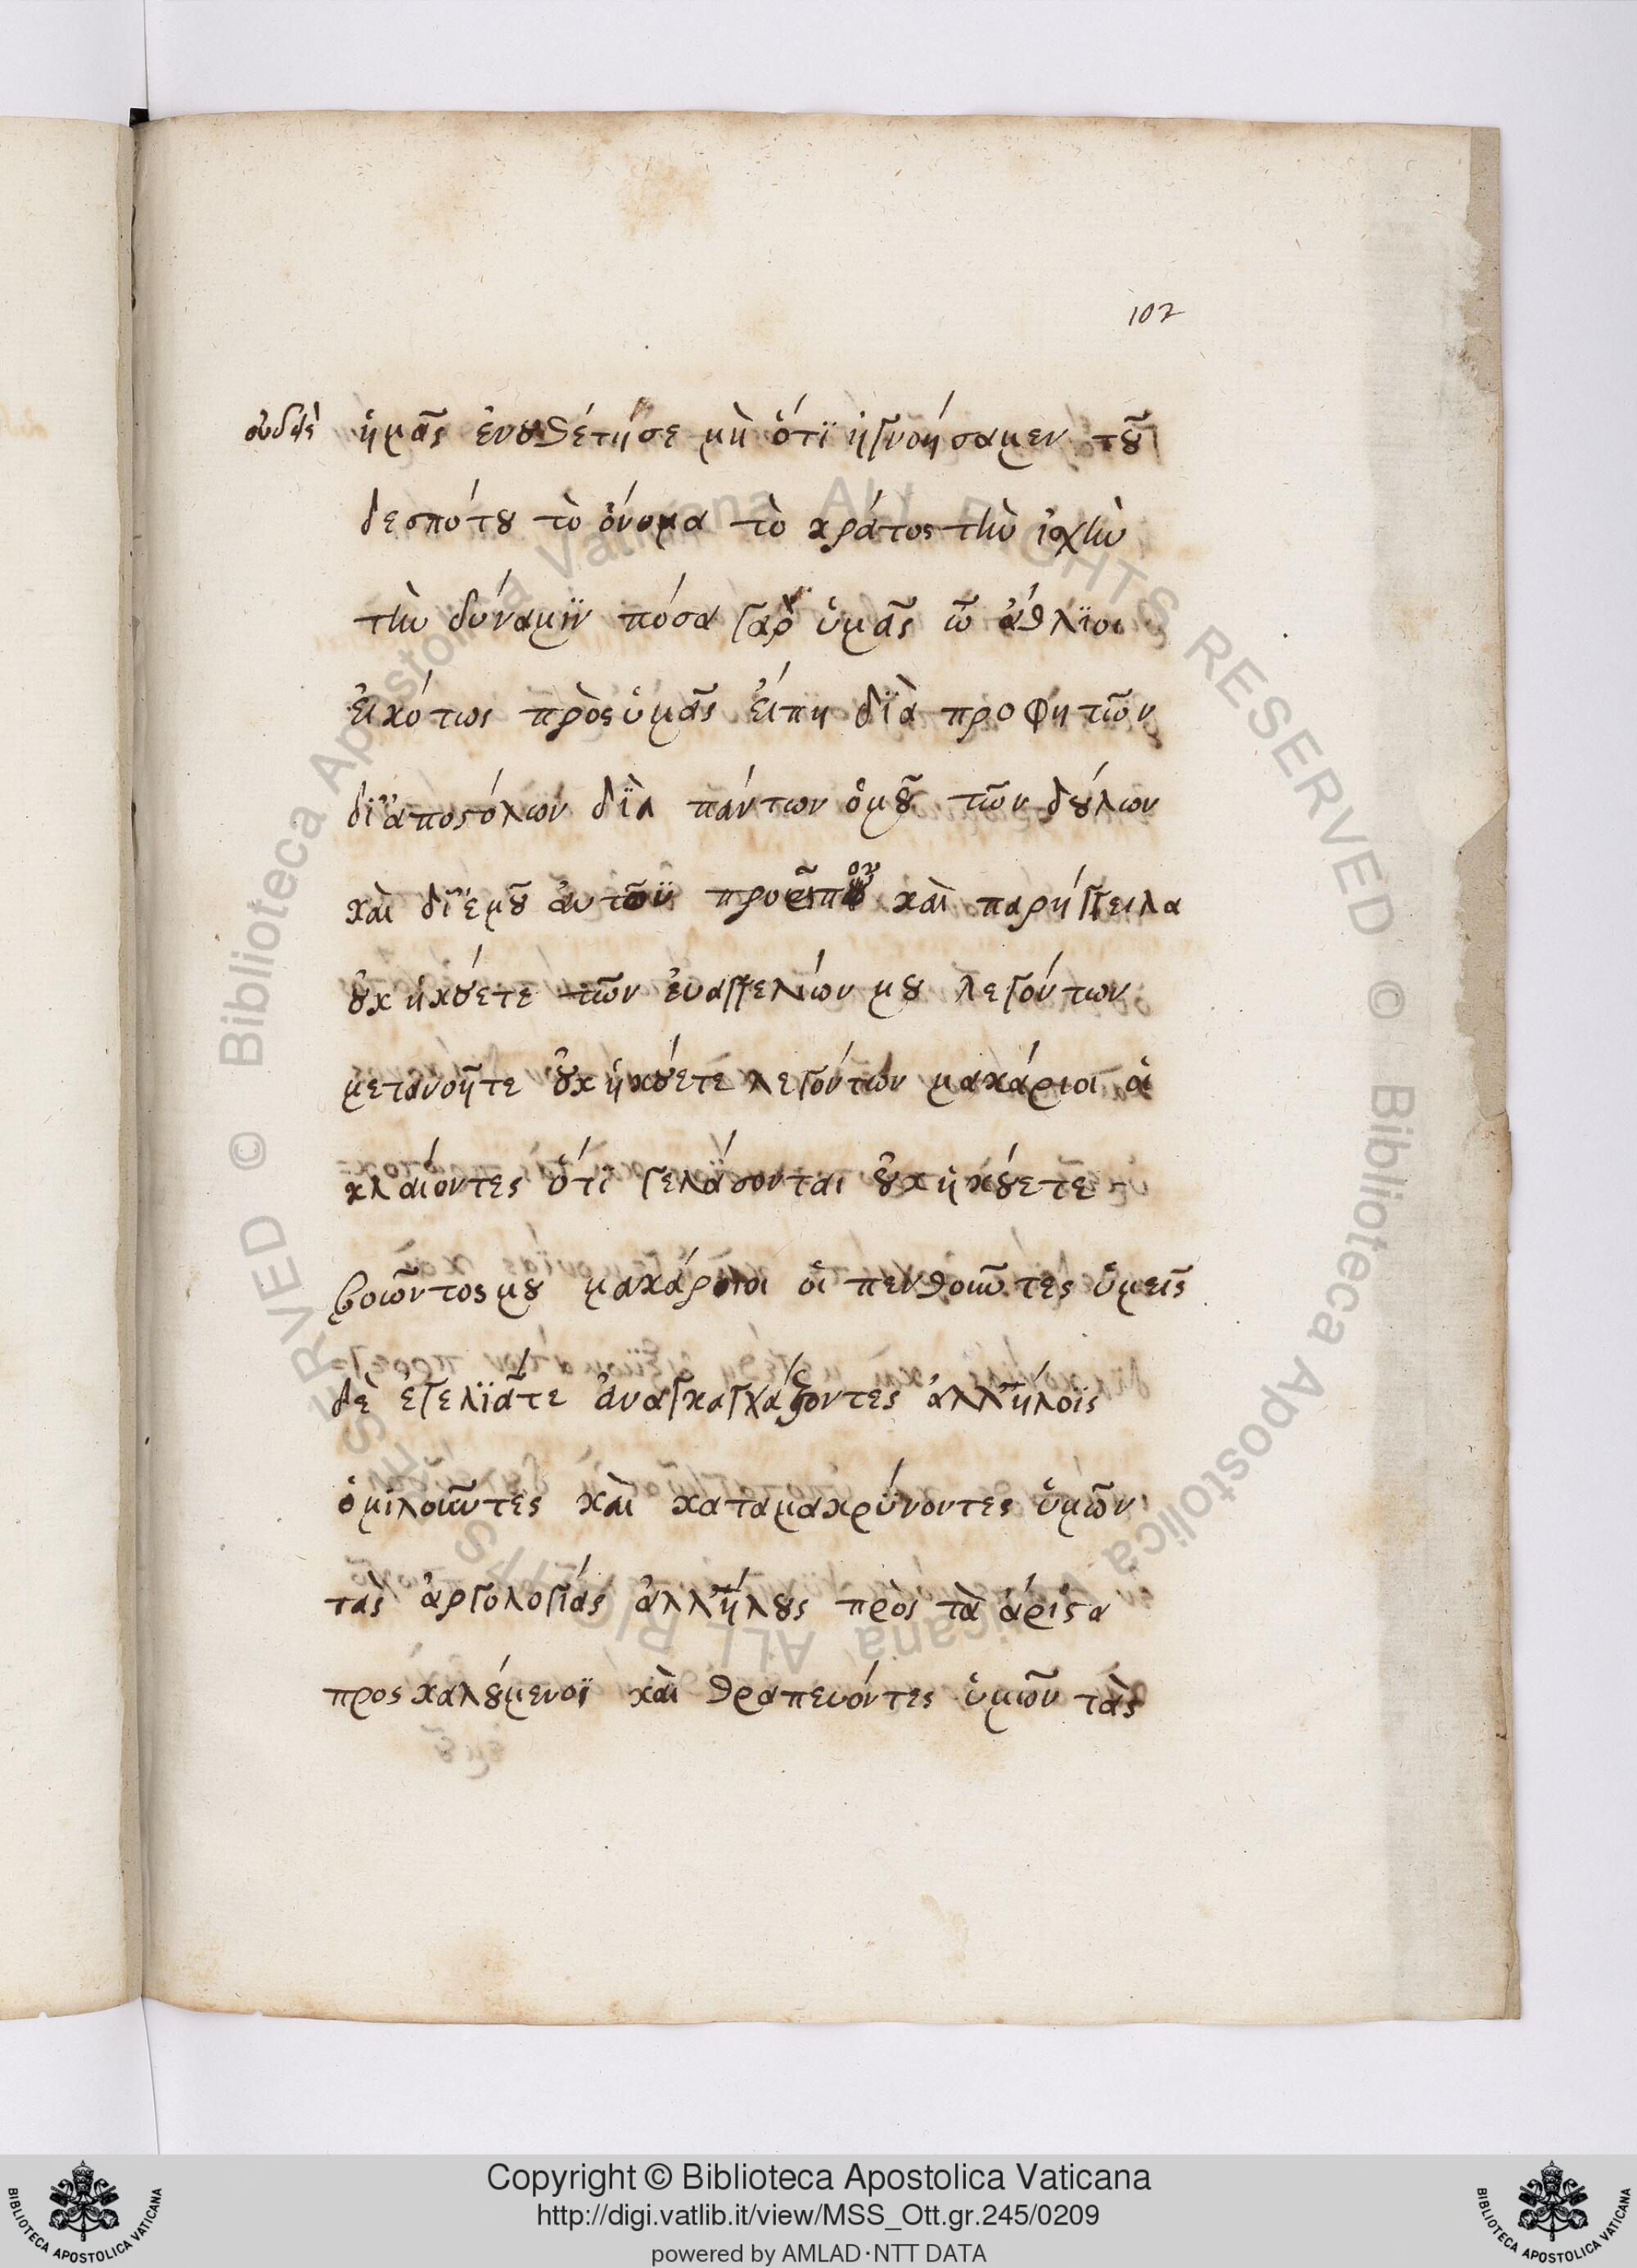 102
οὐδεὶς ἡμᾶς ἐνουθέτησε μὴ ὅτϊ ἠγνοήσαμεν τοῦ
δεσπότου τὸ ὄνομα τὸ κράτος τὴν ἰσχὺν
τὴν δύναμϊν πόσα γὰρ ὑμᾶς ὦ ἄθλϊοι
εἰκότως πρὸς ὑμᾶς εἴπη δϊὰ προφητῶν
δϊ ἀποστόλων δϊὰ πάντων ὁμοῦ τῶν δούλων
καὶ δϊ ἐμοῦ αὐτοῦ προεῖπον καὶ παρήγγειλα
οὐκ ἠκούετε τῶν εὐαγγελίων μου λεγόντων
μετανοῆτε οὐκ ἠκούετε λεγόντων μακάριοι οἱ
κλαίοντες ὅτι γελάσονται οὐκ ἠκούετε
βοῶντος μου μακάριοι οἱ πενθοῦντες ὑμεῖς
δὲ ἐγελϊᾶτε ἀναγκαγχάζοντες ἀλλήλοϊς
ὁμιλοῦντες καὶ καταμακρύνοντες ὑμῶν
τὰς ἀργολογίας ἀλλήλους πρὸς τὰ ἄριστα
προσκαλούμενοϊ καὶ θραπευόντες ὑμῶν τὰς
Copyright © Biblioteca Apostolica Vaticana
http://digi.vatlib.it/view/MSS_Ott.gr.245/0209
powered by AMLAD·NTT DATA
BIBLIOTECA APOSTOLICA VATICANA
BIBLIOTECA APOSTOLICA VATICANA
© Biblioteca Apostolica Vaticana ALL RIGHTS RESERVED
© Biblioteca Apostolica Vaticana ALL RIGHTS RESERVED